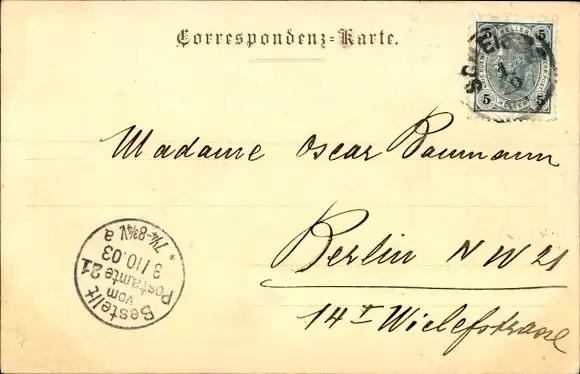 Correspondenz-Karte.
5 HELLER 5
5 HELLER 5
Madame Oscar Baumann
Berlin N W 21
14 I Wielefstrasse
Bestellt
vom
Postamte 21
3/10.03
* 7¼-8¾V. a